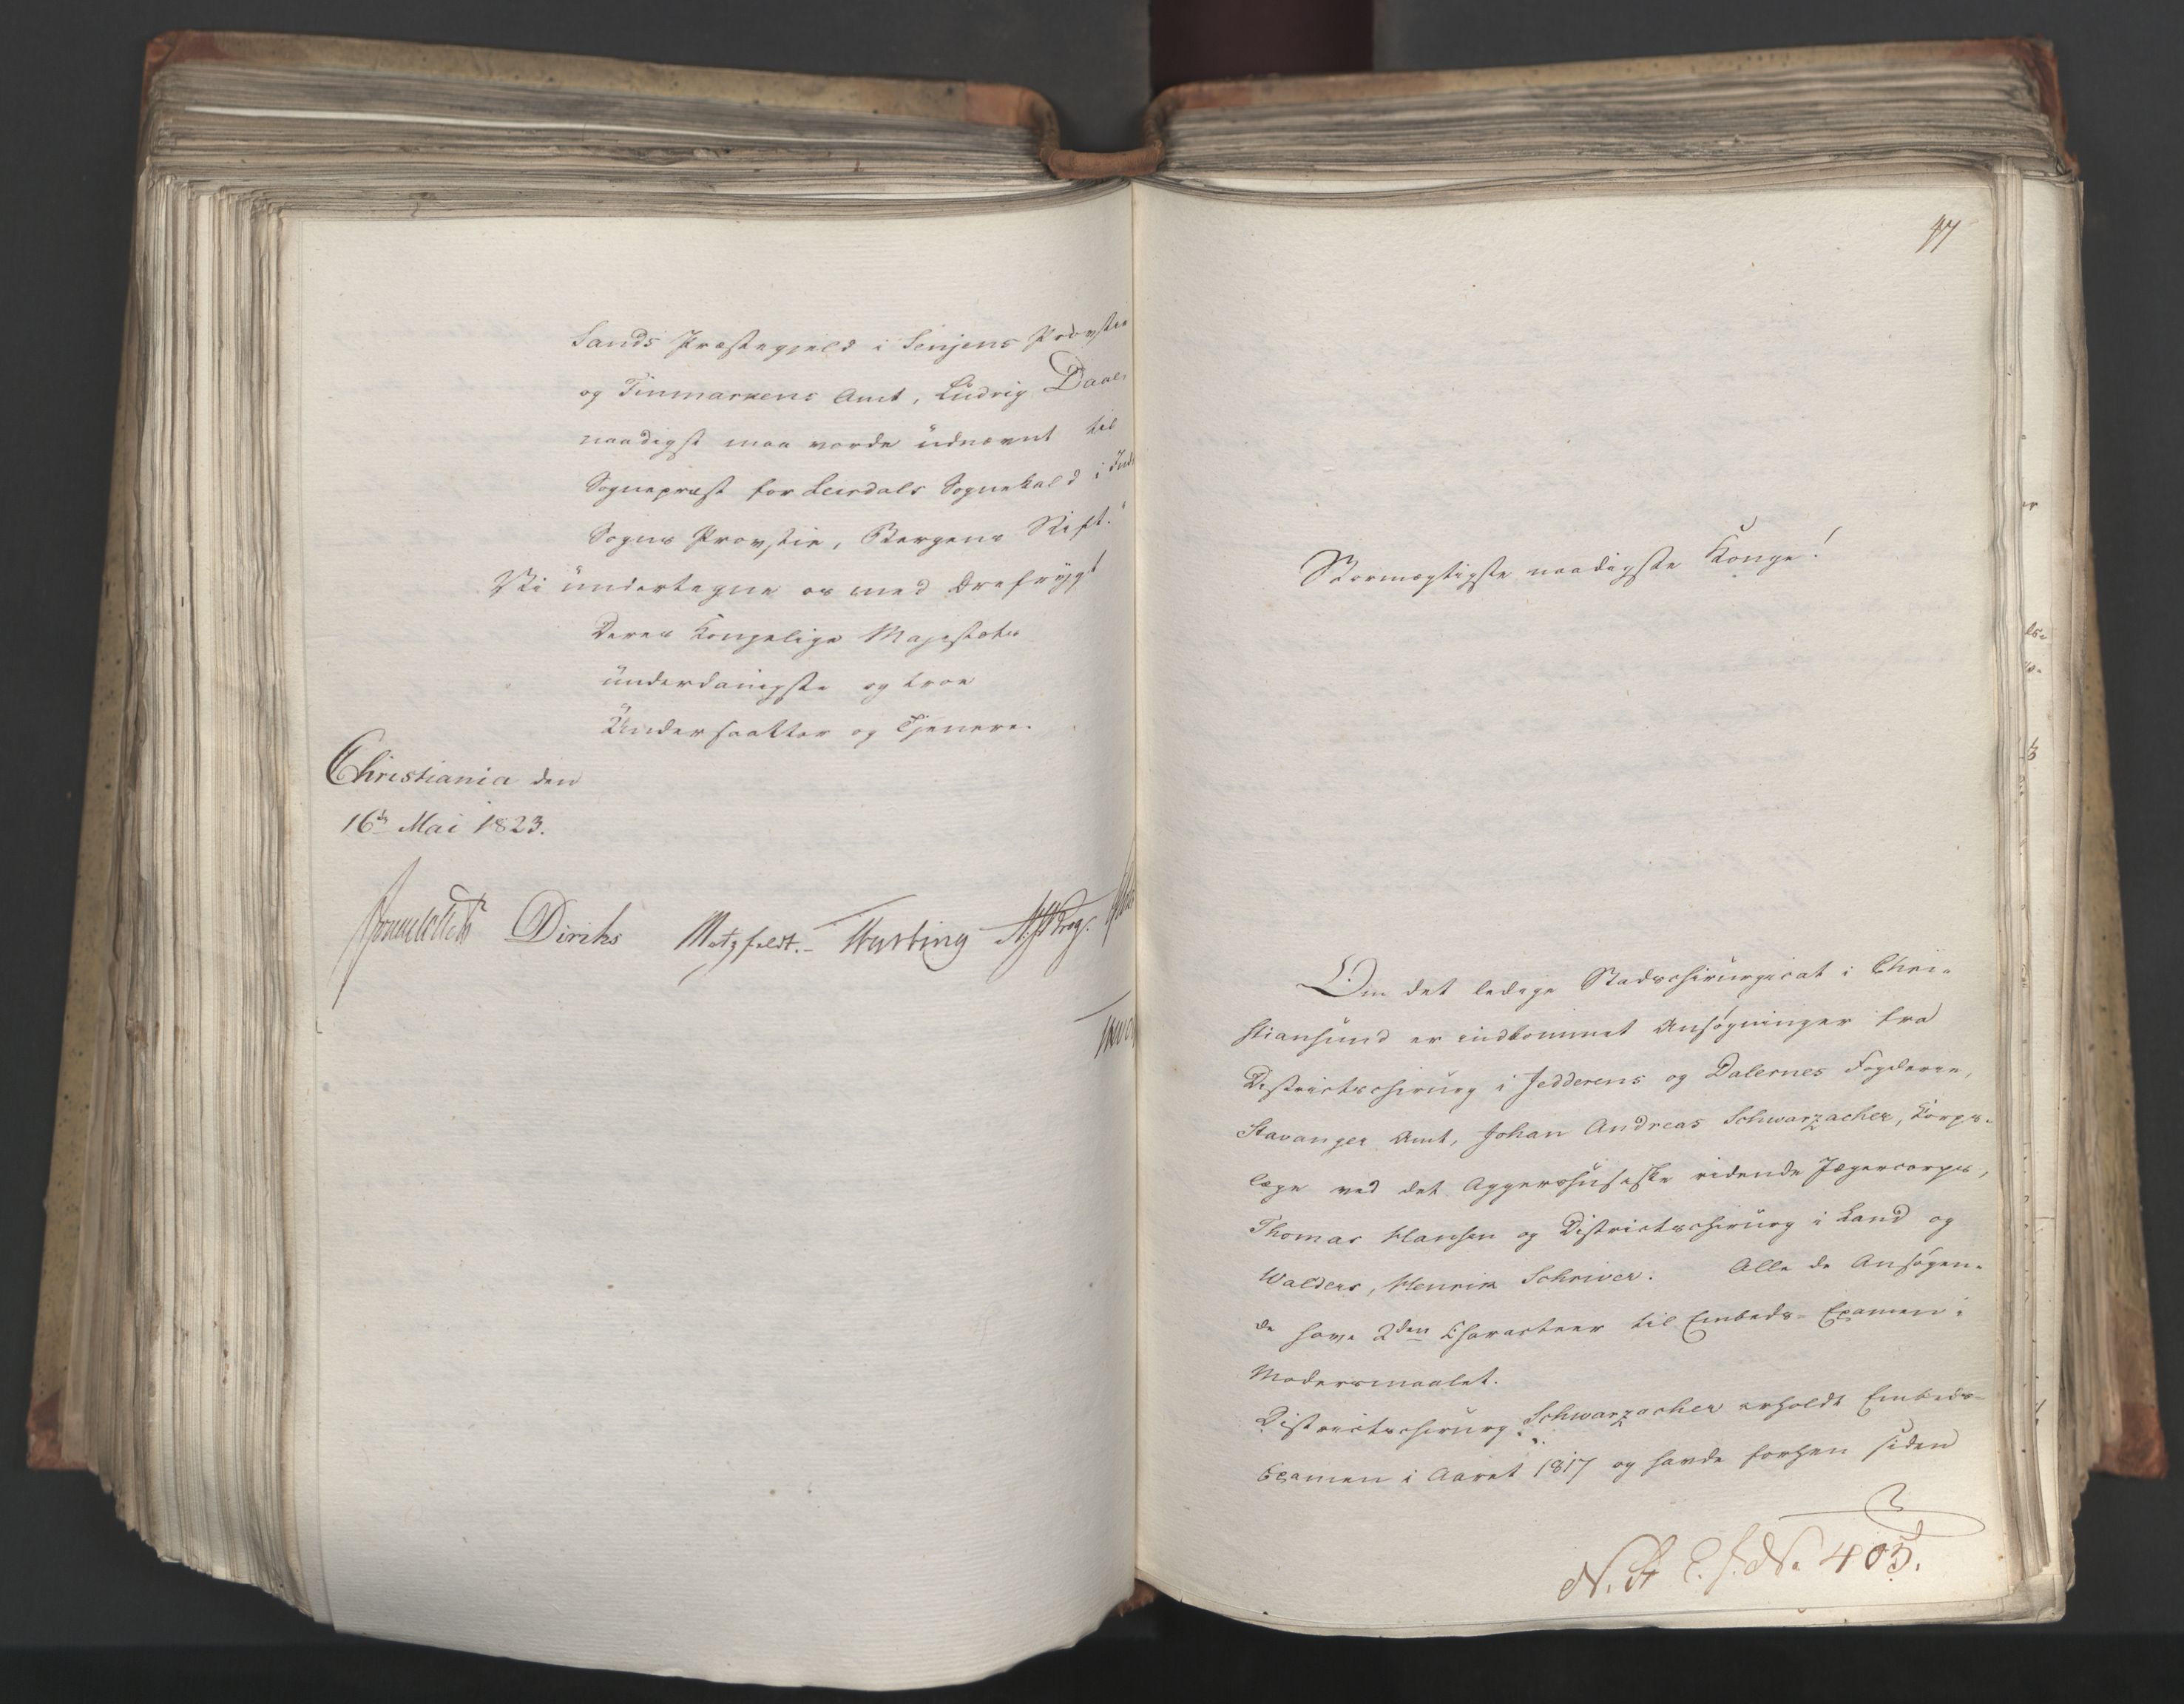 Sands Præstegjeld i Senjens Provstie
og Finmarkens Amt, Ludvig Daae,
naadigst maa vorde udnævnt til
Sognepræst for Leirdals Sognekald i Indre
Sogns Provstie, Bergens Stift."
Vi undertegne os med Ærefrygt
Deres Kongelige Majestæts
underdanigste og troe
Undersaatter og Tjenere.
Christiania den
16de Mai 1823.
Sommerhielm Diriks Motzfeldt.- Hersting Krog.
47
Stormægtigste naadigste Konge!
Om det ledige Stadschirurgicat i Chri-
stiansund er indkommet Ansøgninger fra
Districtschirurg i Jedderens og Dalernes Fogderie,
Stavanger Amt, Johan Andreas Schwarzacher, Korps-
læge ved det Aggershusiske ridende Jægercorps,
Thomas Hansen og Districtschirurg i Land og
Walders, Henrik Schriver. Alle de Ansøgen-
de have 2den Characteer til Embeds-Examen i
Modersmaalet.
Districtschirurg Schwarzacher erholdt Embeds-
Examen i Aaret 1817 og havde forhen siden
No 405.